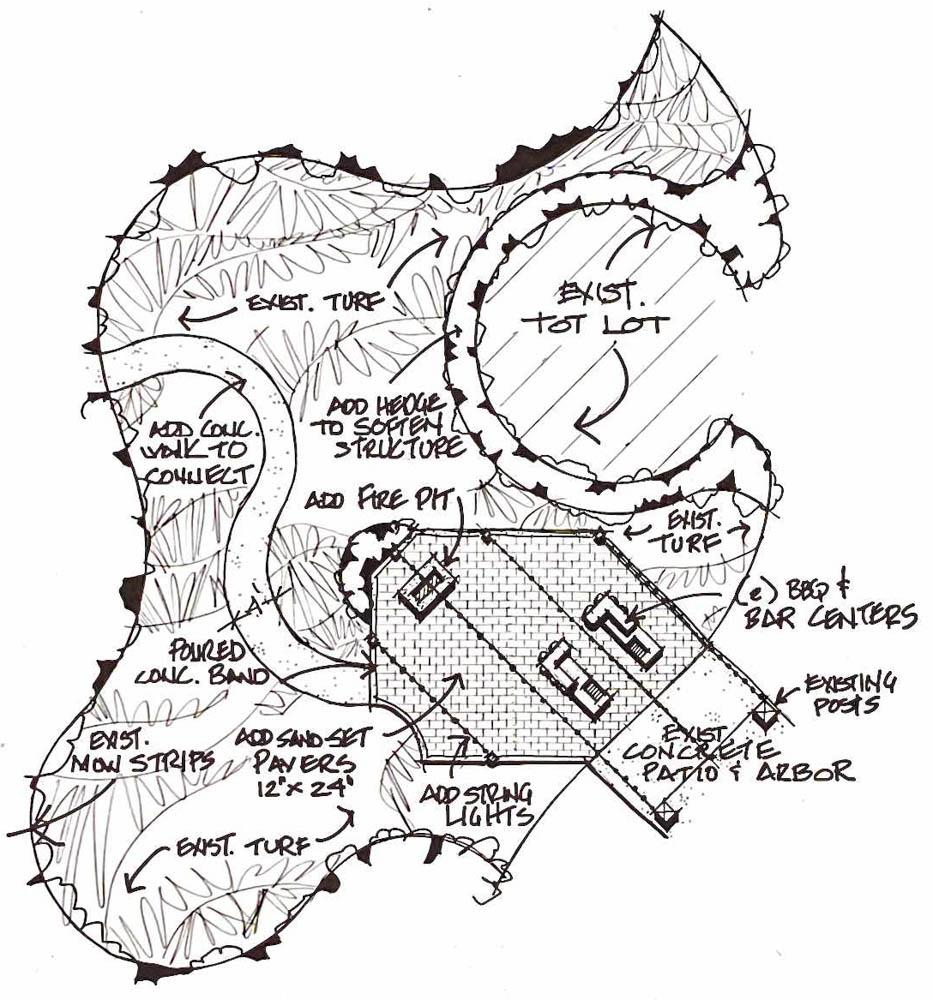 EXIST. TURF
EXIST.
TOT LOT
ADD HEDGE
TO SOFTEN
STRUCTURE
ADD CONC.
WALK TO
CONNECT
ADD FIRE PIT
EXIST.
TURF
(e) BBQ &
BAR CENTERS
4'
POURED
CONC. BAND
EXISTING
POSTS
EXIST.
MOW STRIPS
ADD SAND SET
PAVERS
12" X 24"
EXIST.
CONCRETE
PATIO & ARBOR
ADD STRING
LIGHTS
EXIST. TURF